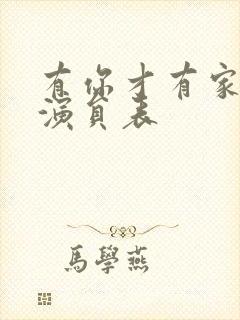 有你才有家
演員表
馬學燕